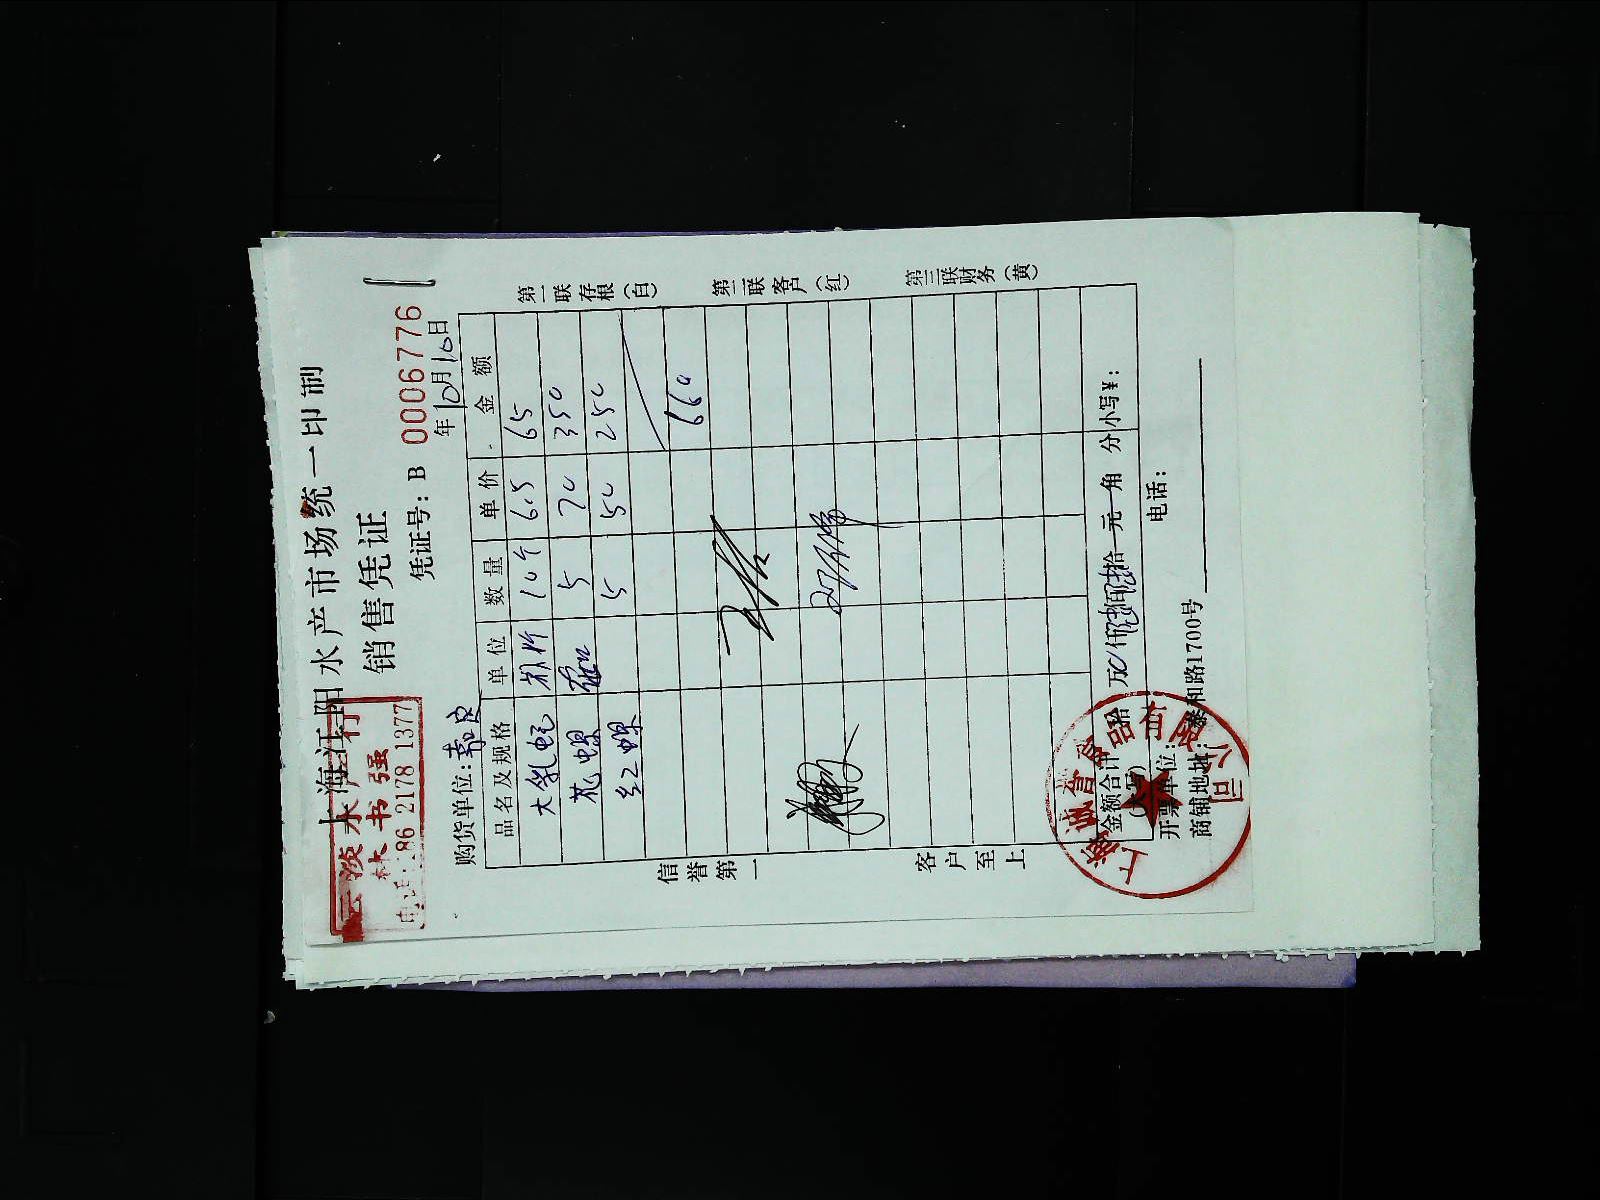 上海江阳水产市场统一印制
销售凭证
水产行
林书强
186 2178 1377
凭证号：B 0006776
购货单位：
年10月10日
品名及规格 单位 数量 单价 金额
大乳蛏 10个 6.5 65
花螺 5 70 350
红螺 5 50 250
660
信誉第一
客户至上
第一联存根（白）
第二联客户（红）
第三联财务（黄）
金额合计（大写） 万 仟 佰 拾 元 角 分 小写¥：
开票单位： 电话：
商铺地址： 和路1700号
上海诚誉食品有限公司